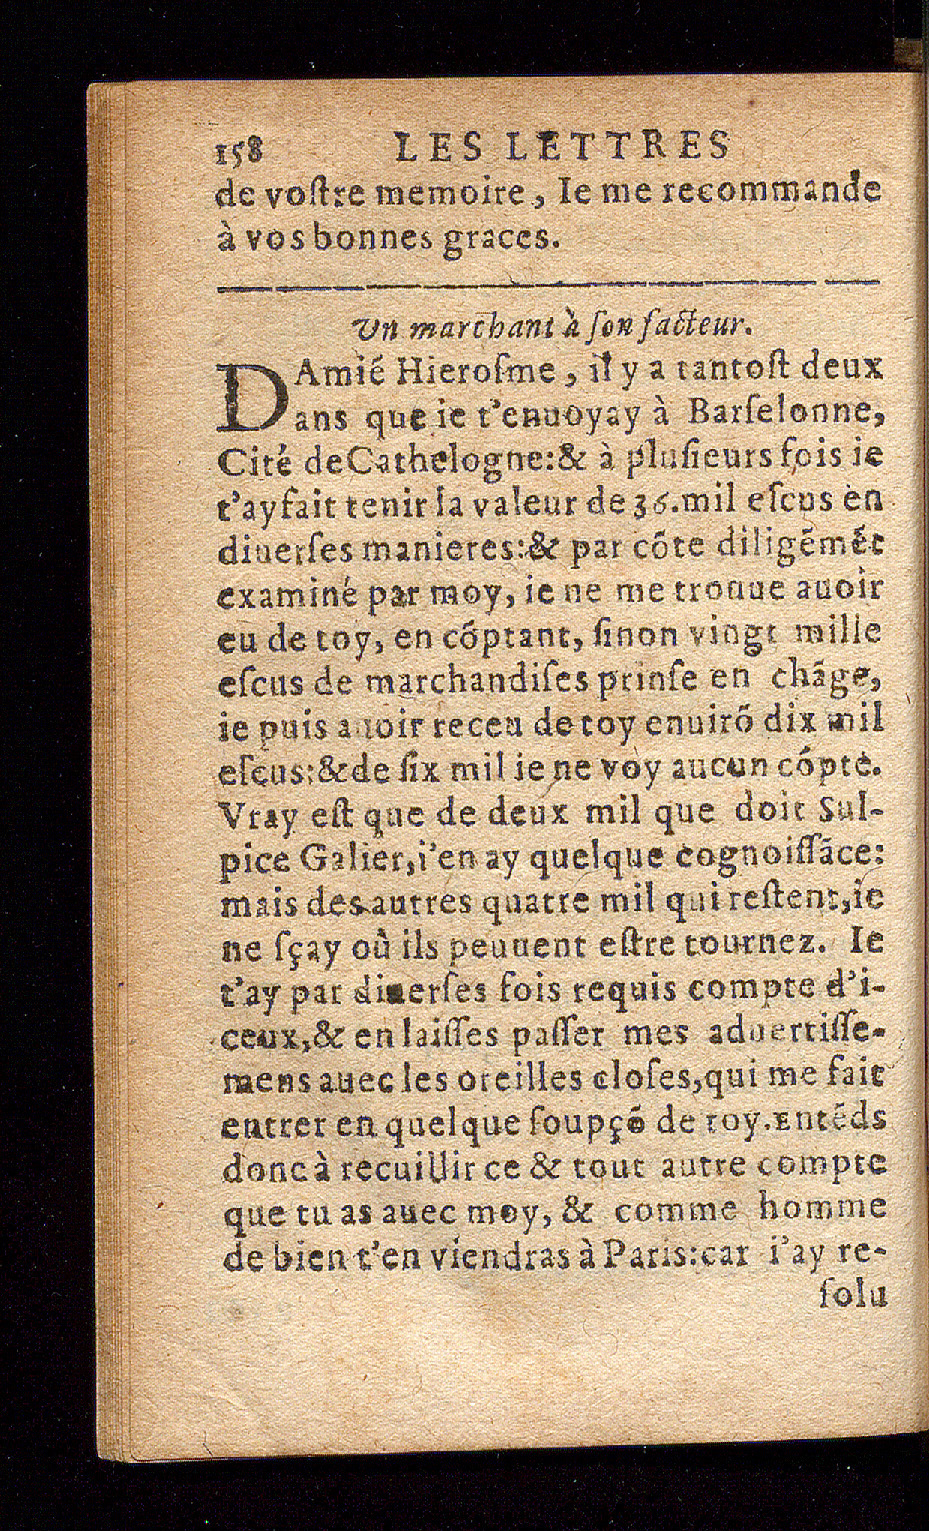 158 LES LETTRES
de voſtre memoire, Ie me recommande
à vos bonnes graces.
Un marchant à ſon facteur.
DAmié Hieroſme, il y a tantoſt deux
ans que ie t'enuoyay à Barſelonne,
Cité de Cathelogne:& à pluſieurs fois ie
t'ay fait tenir la valeur de 36.mil eſcus en
diuerſes manieres:& par cõte diligẽmẽt
examiné par moy, ie ne me trouue auoir
eu de toy, en cõptant, ſinon vingt mille
eſcus de marchandiſes prinſe en chãge,
ie puis auoir receu de toy enuirõ dix mil
eſcus:& de ſix mil ie ne voy aucun cõpte.
Vray eſt que de deux mil que doit Sul-
pice Galier,i'en ay quelque cognoiſſãce:
mais des autres quatre mil qui reſtent,ie
ne ſçay où ils peuuent eſtre tournez. Ie
t'ay par diuerſes fois requis compte d'i-
ceux,& en laiſſes paſſer mes aduertiſſe-
mens auec les oreilles cloſes,qui me fait
entrer en quelque ſoupçõ de toy.Entẽds
donc à recuillir ce & tout autre compte
que tu as auec moy, & comme homme
de bien t'en viendras à Paris:car i'ay re-
ſolu